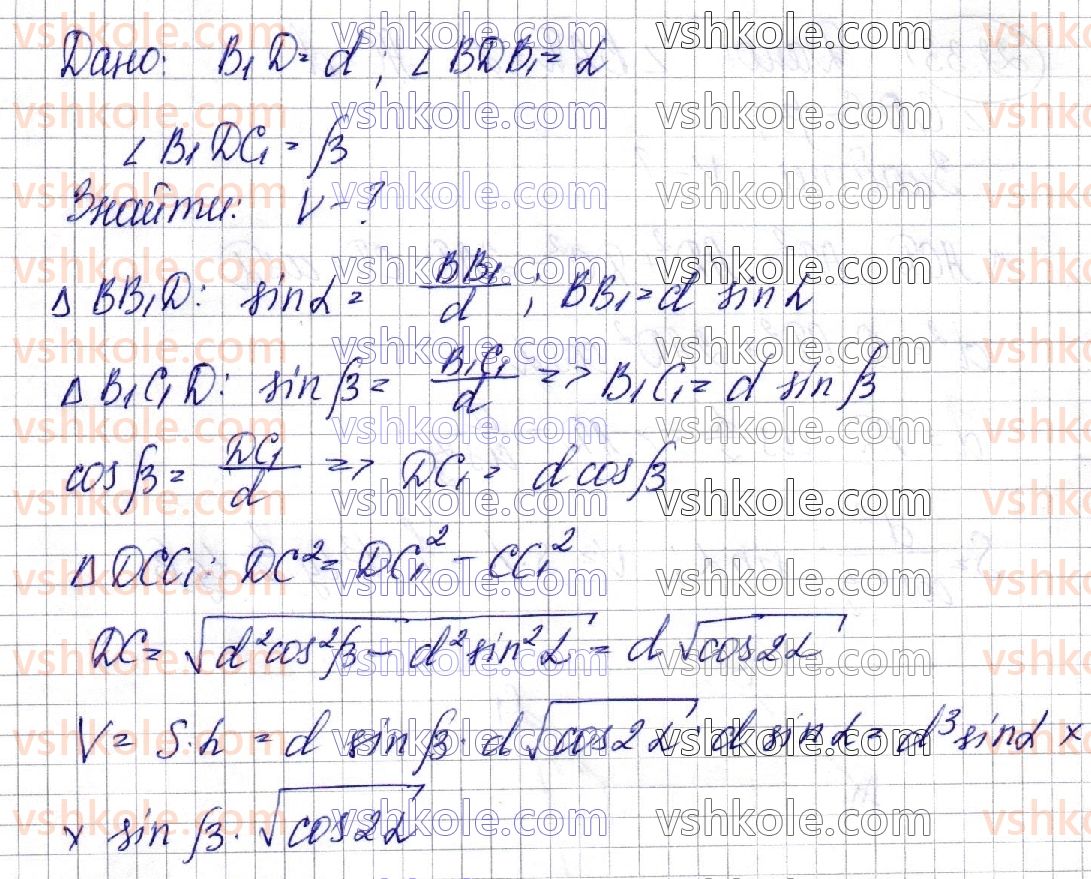 Дано: B₁D = d; ∠BDB₁ = α
∠B₁DC₁ = β
Знайти: V - ?
△ BB₁D: sinα = BB₁/d; BB₁ = d sinα
△ B₁C₁D: sinβ = B₁C₁/d => B₁C₁ = d sinβ
cosβ = DC₁/d => DC₁ = d cosβ
△ DCC₁: DC² = DC₁² - CC₁²
DC = √(d²cos²β - d²sin²α) = d√(cos2α)
V = S·h = d sinβ · d√(cos2α) · d sinα = d³ sinα ×
× sinβ · √(cos2α)
vshkole.com